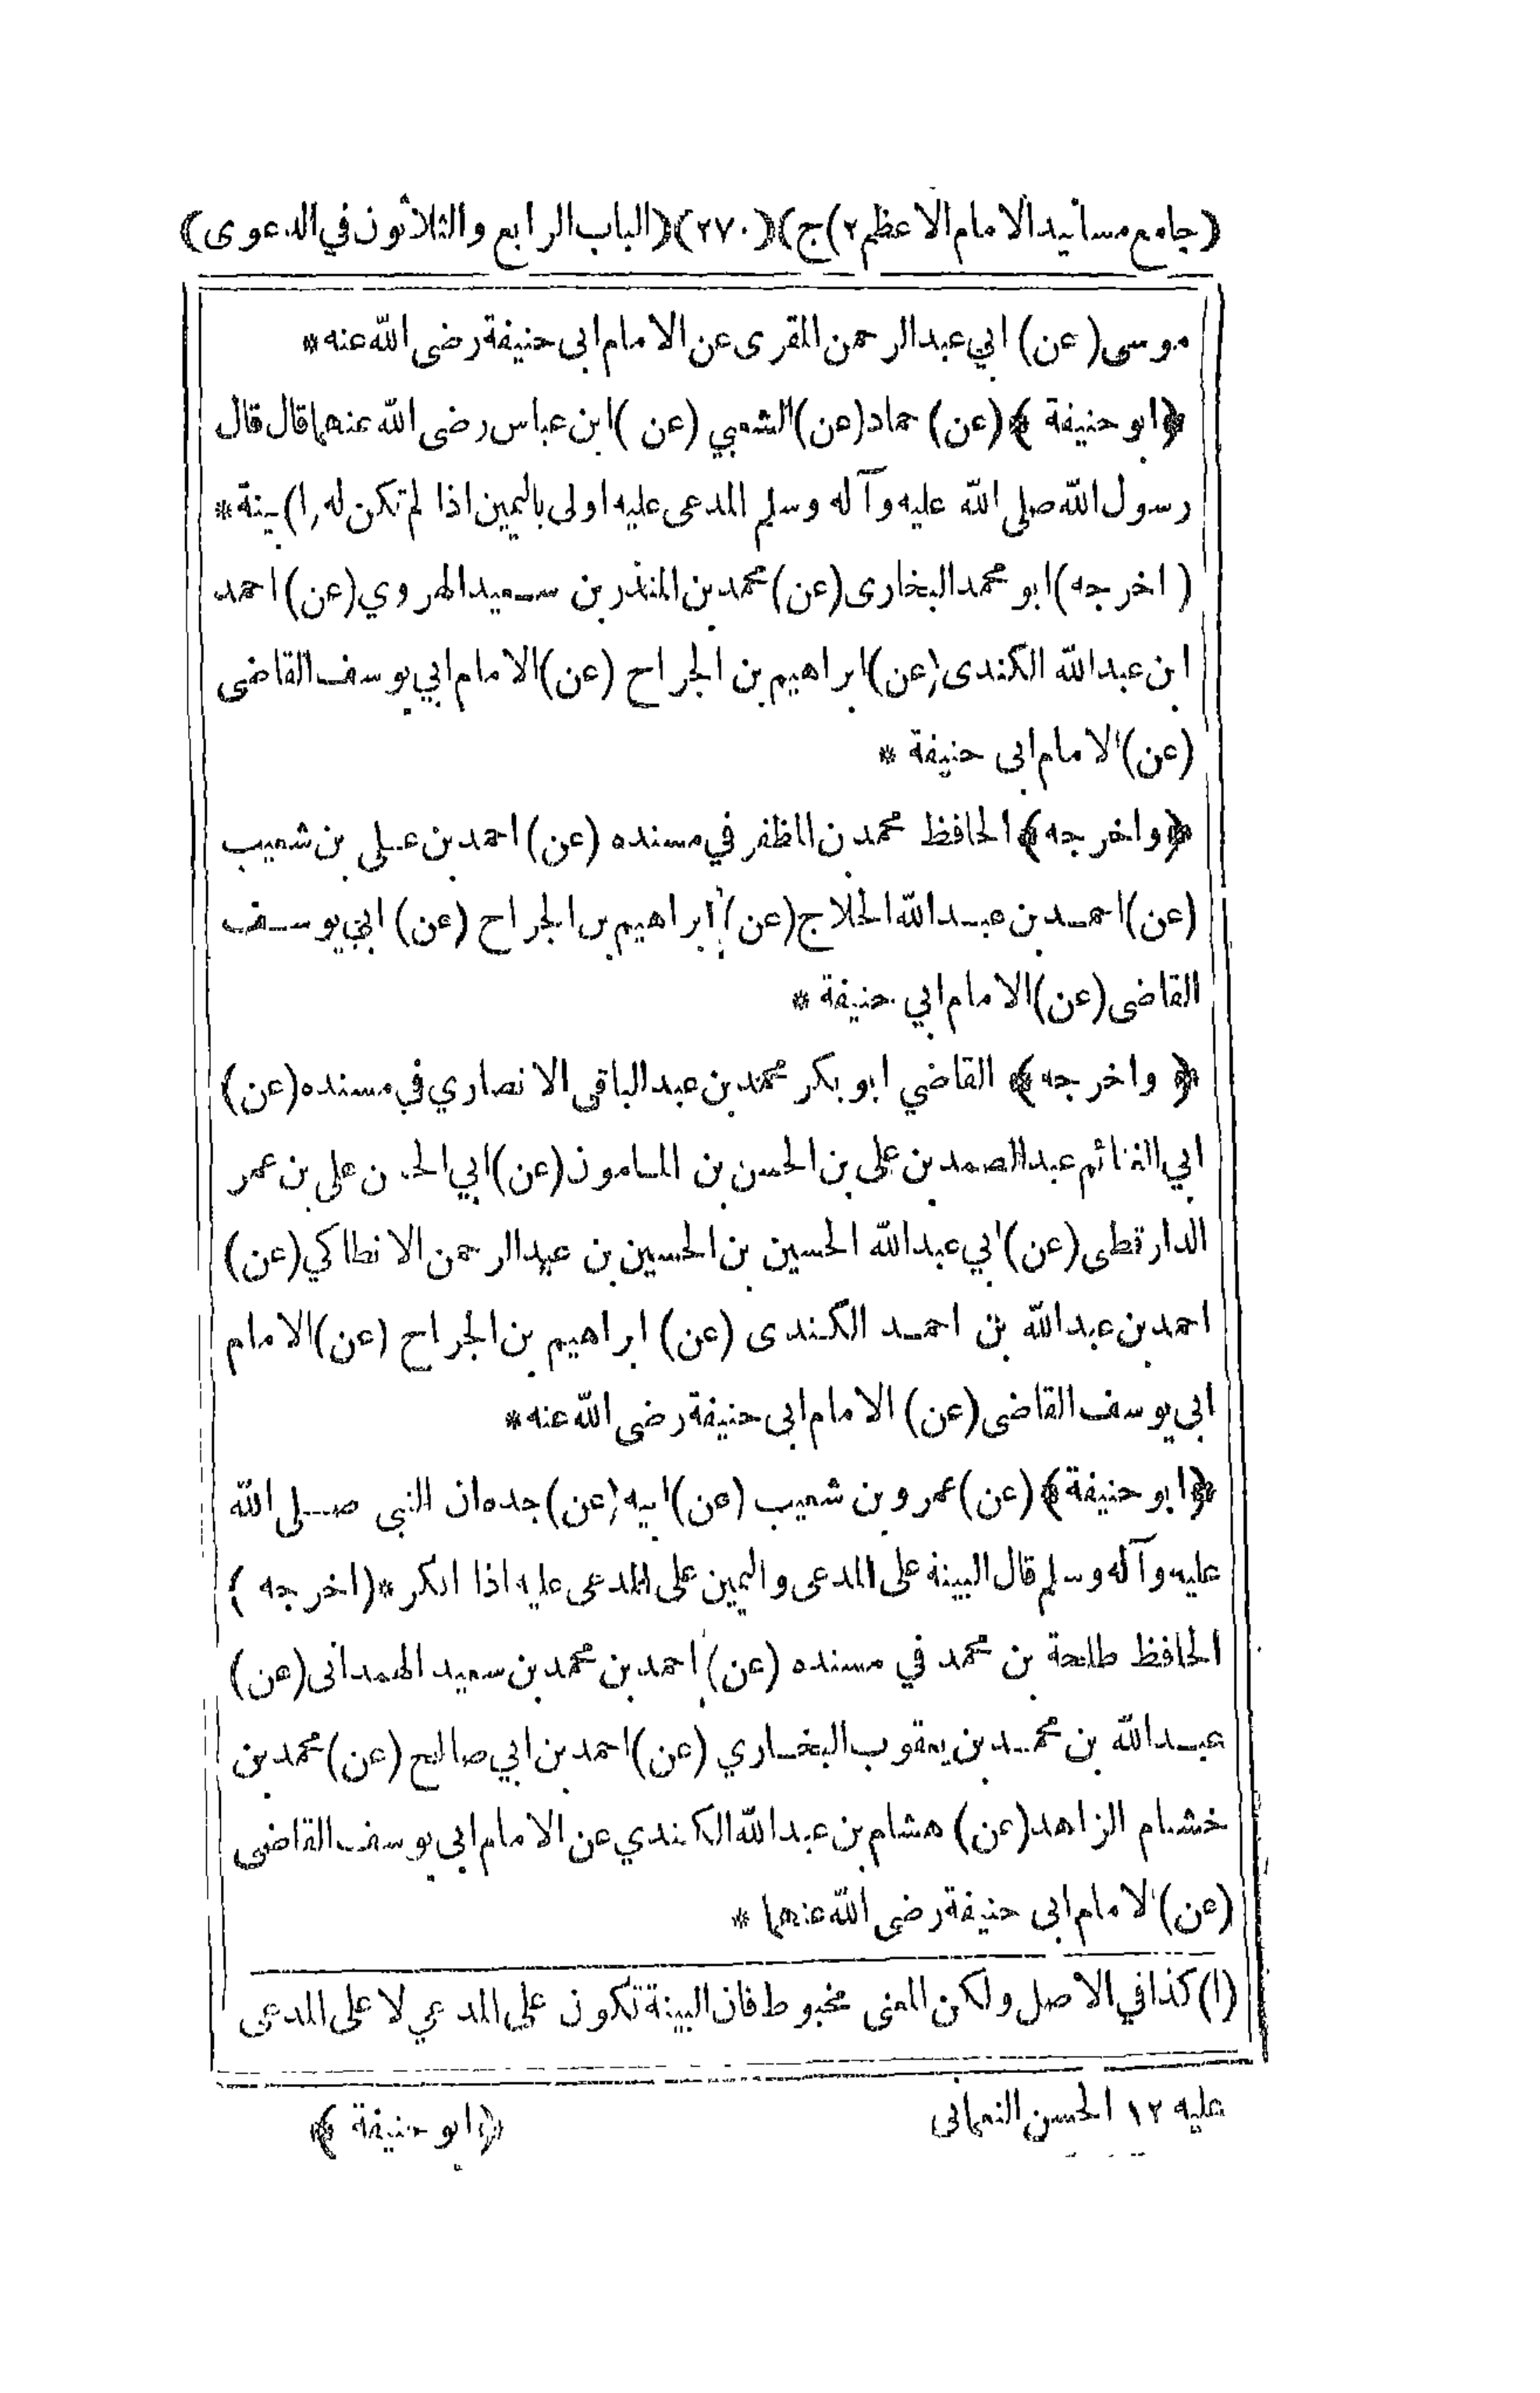 (جامع مسانيد الامام الاعظم ٢)ج)(٢٧٠)(الباب الرابع والثلاثون في الدعوى)
موسى (عن) ابي عبد الرحمن المقرى عن الامام ابى حنيفة رضى الله عنه *
﴿ابو حنيفة﴾ (عن) حماد (عن) الشعبي (عن) ابن عباس رضى الله عنهما قال قال
رسول الله صلى الله عليه وآله وسلم المدعى عليه اولى باليمين اذا لم تكن له (١) بينة *
(اخرجه) ابو محمد البخارى (عن) محمد بن المنذر بن سعيد الهروي (عن) احمد
ابن عبد الله الكندى (عن) ابراهيم بن الجراح (عن) الامام ابي يوسف القاضى
(عن) الامام ابى حنيفة *
﴿واخرجه﴾ الحافظ محمد بن المظفر في مسنده (عن) احمد بن على بن شعيب
(عن) احمد بن عبد الله الحلاج (عن) ابراهيم بن الجراح (عن) ابي يوسف
القاضى (عن) الامام ابي حنيفة *
﴿واخرجه﴾ القاضي ابو بكر محمد بن عبد الباقى الانصاري في مسنده (عن)
ابي الغنائم عبد الصمد بن على بن الحسن بن المامون (عن) ابي الحسن على بن عمر
الدارقطى (عن) ابي عبد الله الحسين بن الحسين بن عبد الرحمن الانطاكي (عن)
احمد بن عبد الله بن احمد الكندى (عن) ابراهيم بن الجراح (عن) الامام
ابى يوسف القاضى (عن) الامام ابى حنيفة رضى الله عنه *
﴿ابو حنيفة﴾ (عن) عمرو بن شعيب (عن) ابيه (عن) جده ان النبى صلى الله
عليه وآله وسلم قال البينة على المدعى واليمين على المدعى عليه اذا انكر * (اخرجه)
الحافظ طلحة بن محمد في مسنده (عن) احمد بن محمد بن سعيد الهمدانى (عن)
عبد الله بن محمد بن يعقوب البخاري (عن) احمد بن ابي صالح (عن) محمد بن
خشام الزاهد (عن) هشام بن عبد الله الكندي عن الامام ابى يوسف القاضى
(عن) الامام ابى حنيفة رضى الله عنهما *
(١) كذا في الاصل ولكن المعنى مخبوط فان البينة تكون على المدعي لا على المدعى
عليه ١٢ الحسن النعمانى
﴿ابو حنيفة﴾